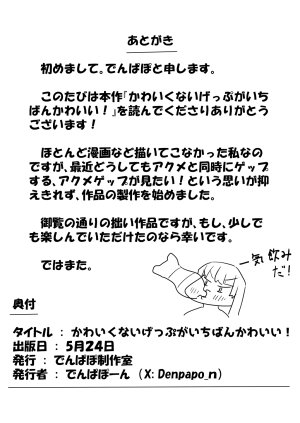 あとがき
初めまして。でんぱぽと申します。
このたびは本作『かわいくないげっぷがいち
ばんかわいい！』を読んでくださりありがとう
ございます！
ほとんど漫画など描いてこなかった私なの
ですが、最近どうしてもアクメと同時にゲップ
する、アクメゲップが見たい！という思いが抑
えきれず、作品の製作を始めました。
御覧の通りの拙い作品ですが、もし、少しで
も楽しんでいただけたのなら幸いです。
ではまた。
一気飲み
だ！
奥付
タイトル : かわいくないげっぷがいちばんかわいい！
出版日 : 5月24日
発行 : でんぱぽ制作室
発行者 : でんぱぽーん (X: Denpapo_n)